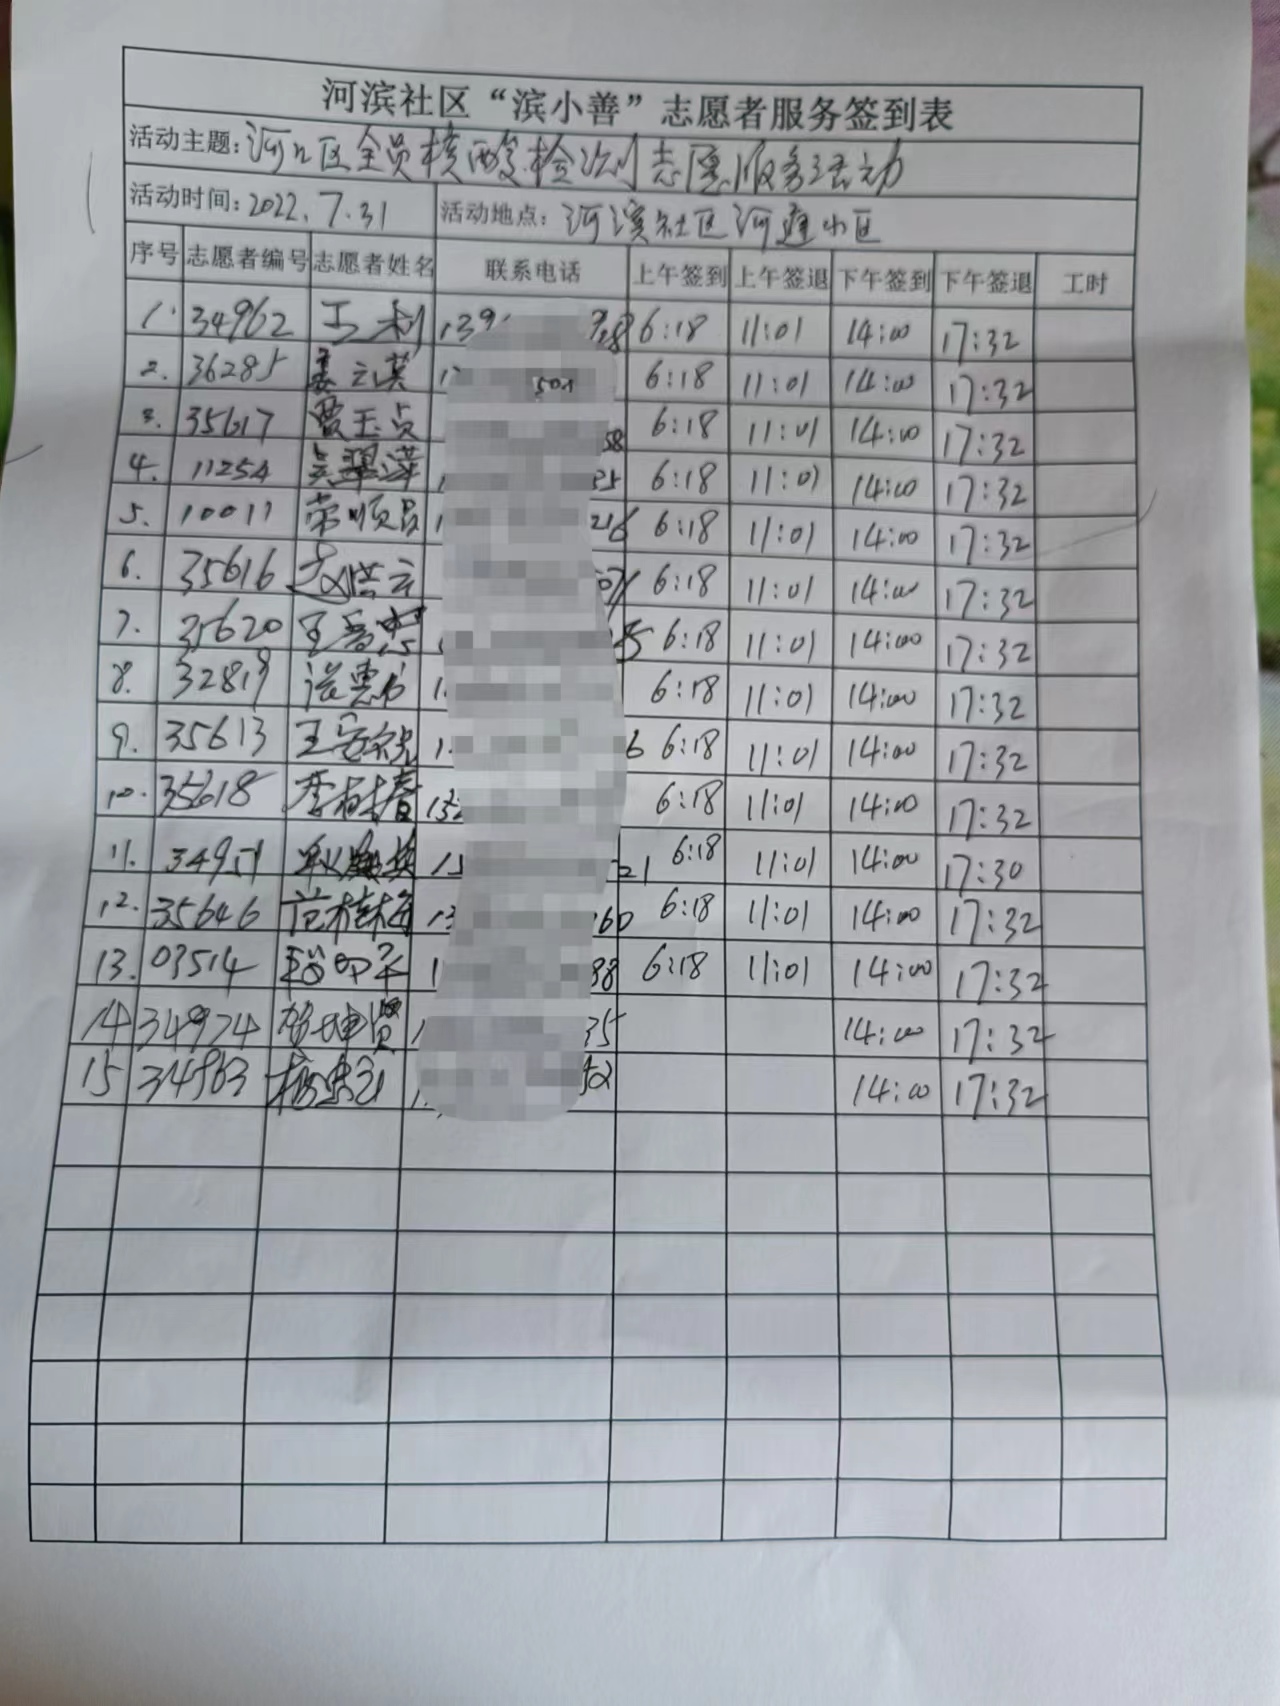 河滨社区“滨小善”志愿者服务签到表
活动主题：河口区全员核酸检测志愿服务活动
活动时间：2022.7.31 活动地点：河滨社区河庭小区
序号 志愿者编号 志愿者姓名 联系电话 上午签到 上午签退 下午签到 下午签退 工时
1. 34962 王利 139 728 6:18 11:01 14:00 17:32
2. 36285 姜云英 1 501 6:18 11:01 14:00 17:32
3. 35617 贾玉贞 58 6:18 11:01 14:00 17:32
4. 11254 吴翠萍 1 35 6:18 11:01 14:00 17:32
5. 10011 荣顺昌 1 216 6:18 11:01 14:00 17:32
6. 35616 洪云 6:18 11:01 14:00 17:32
7. 35620 王 5 6:18 11:01 14:00 17:32
8. 32819 惠 1 6:18 11:01 14:00 17:32
9. 35613 王 1 6 6:18 11:01 14:00 17:32
10. 35618 李桂春 13 6:18 11:01 14:00 17:32
11. 34951 15 21 6:18 11:01 14:00 17:30
12. 35646 范桂梅 13 160 6:18 11:01 14:00 17:32
13. 03514 1 88 6:18 11:01 14:00 17:32
14 34974 坤贤 1 35 14:00 17:32
15 34963 杨 1 52 14:00 17:32